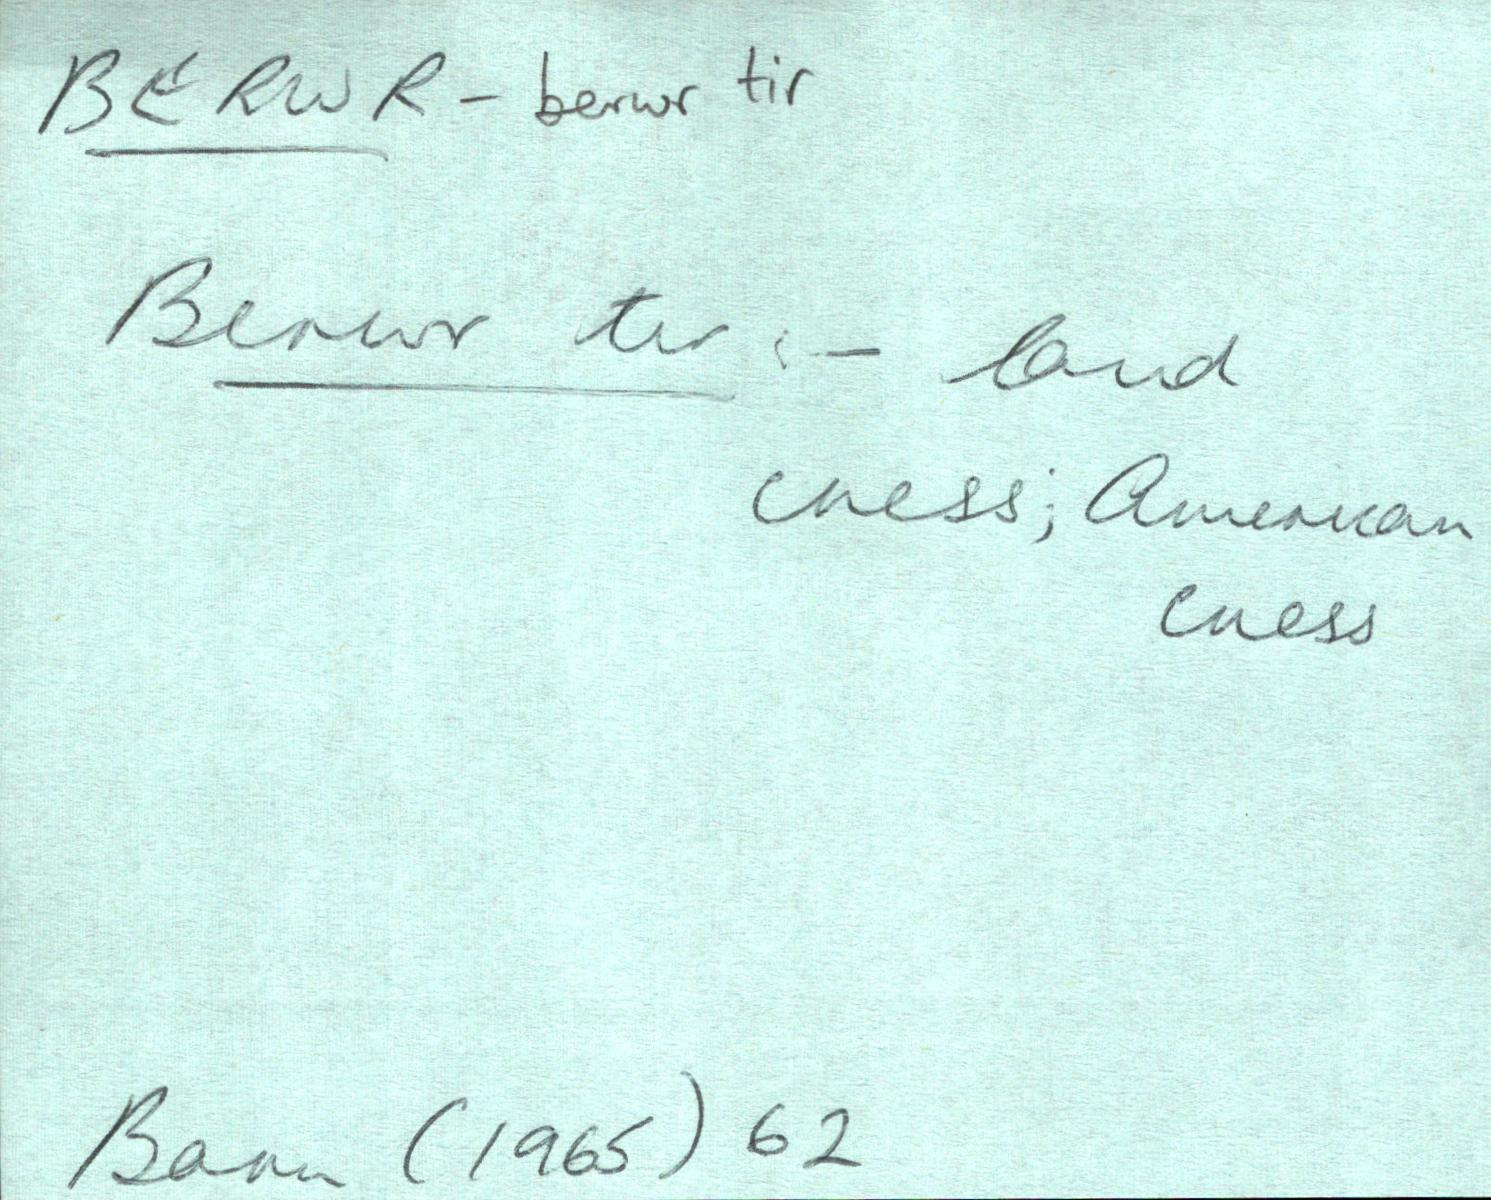 BERWR - berwr tir
Berwr tir :- land
cress; American
cress
(1965) 62